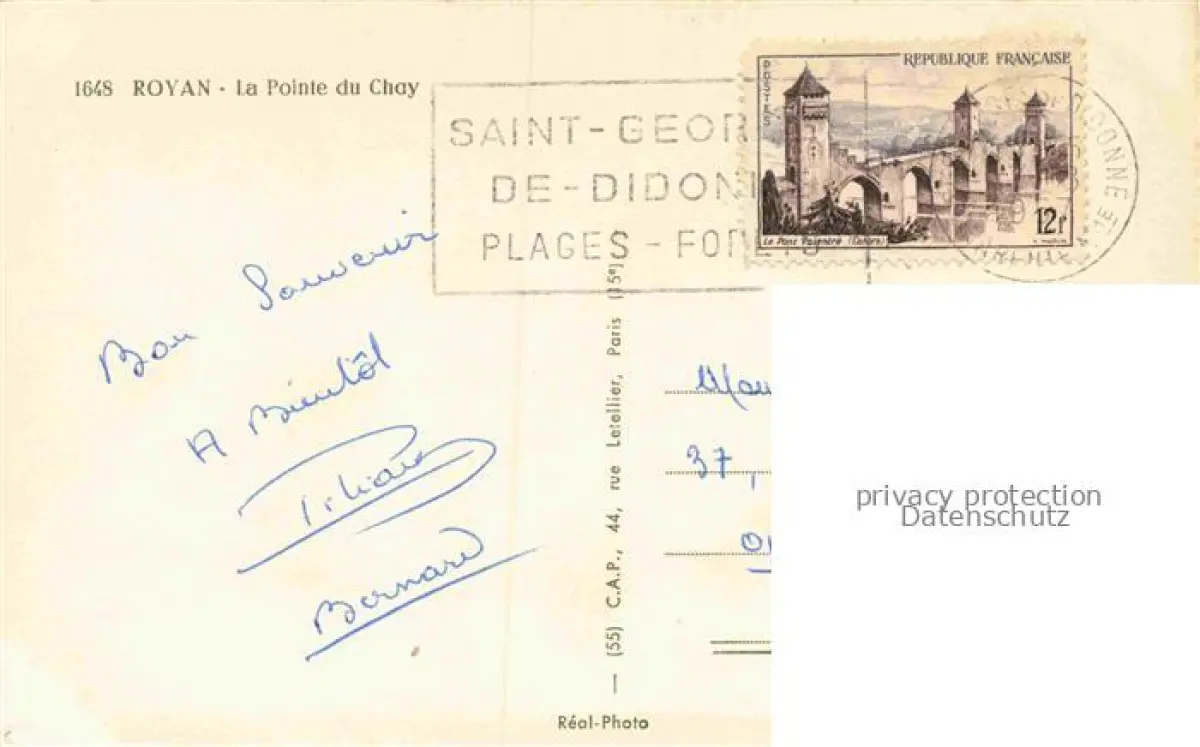 1648 ROYAN - La Pointe du Chay
SAINT-GEOR
DE-DIDON
PLAGES - FOR
REPUBLIQUE FRANÇAISE
POSTES
12F
Le Pont Valentré (Cahors)
DONNE
Bon Souvenir
A Bientôt
Bernard
(55) C.A.P., 44, rue Letellier, Paris (15e)
37,
privacy protection
Datenschutz
Réal-Photo